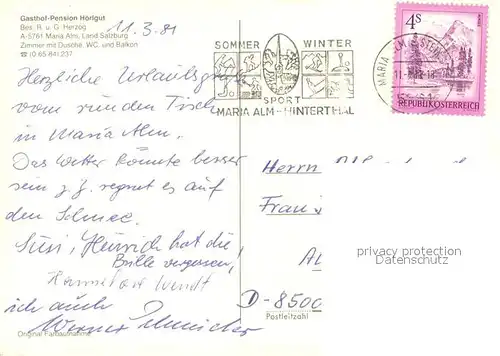 Gasthof-Pension Hörlgut
Bes. R. u. G. Herzog
A-5761 Maria Alm, Land Salzburg
Zimmer mit Dusche, WC, und Balkon
☎ (0 65 84) 237
11.3.81
Herzliche Urlaubsgrüße
vom runden Tisch
in Maria Alm.
Das Wetter könnte besser
sein z.Z. regnet es auf
den Schnee.
Susi, Heinrich hat die
Brille vergessen!
Wendt
ich auch
Werner
Original Farbaufnahme
SOMMER WINTER
SPORT
MARIA ALM-HINTERTHAL
MARIA ALM
4s
REPUBLIK ÖSTERREICH
Herrn
Frau
D-8500
Postleitzahl
privacy protection
AnsichtskartenVersand.com